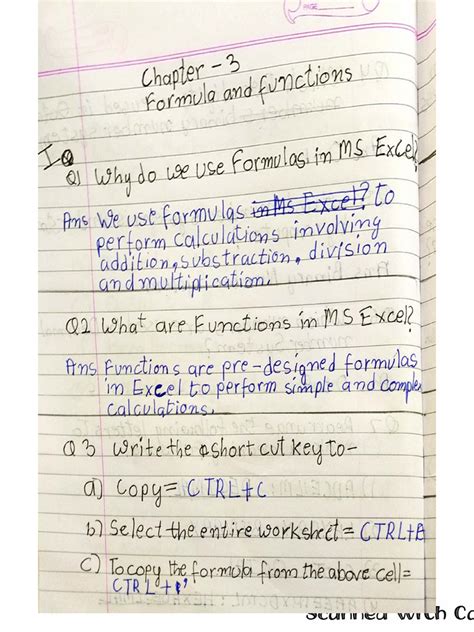 Chapter - 3
Formula and functions
I
Q1 Why do we use Formulas in MS Excel?
Ans We use formulas in Ms Excel? to
perform calculations involving
addition, substraction, division
and multiplication.
Q2 What are Functions in MS Excel?
Ans Functions are pre-designed formulas
in Excel to perform simple and complex
calculations.
Q3 Write the short cut key to-
a) Copy = CTRL+C
b) Select the entire worksheet = CTRL+A
c) To copy the formula from the above cell =
CTRL+'
Scanned with Ca